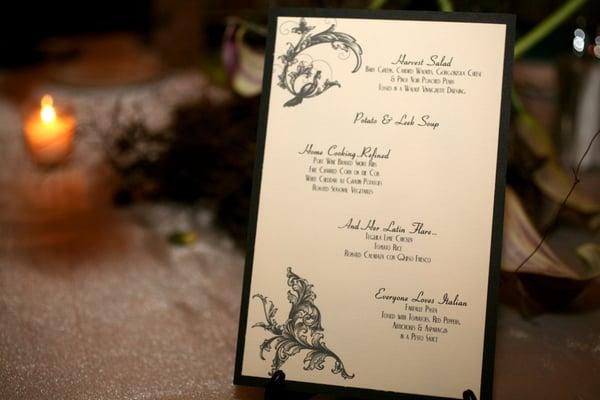 Harvest Salad
Baby Greens, Candied Walnuts, Gorgonzola Cheese
& Pinot Noir Poached Pears
Tossed in a Walnut Vinaigrette Dressing
Potato & Leek Soup
Home Cooking Refined
Port Wine Braised Short Ribs
Fire Charred Corn on the Cob
White Cheddar Au Gratin Potatoes
Roasted Seasonal Vegetables
And Her Latin Flare...
Tequila Lime Chicken
Tomato Rice
Roasted Calabaza con Queso Fresco
Everyone Loves Italian
Farfalle Pasta
Tossed with Tomatoes, Red Peppers,
Artichokes & Asparagus
in a Pesto Sauce